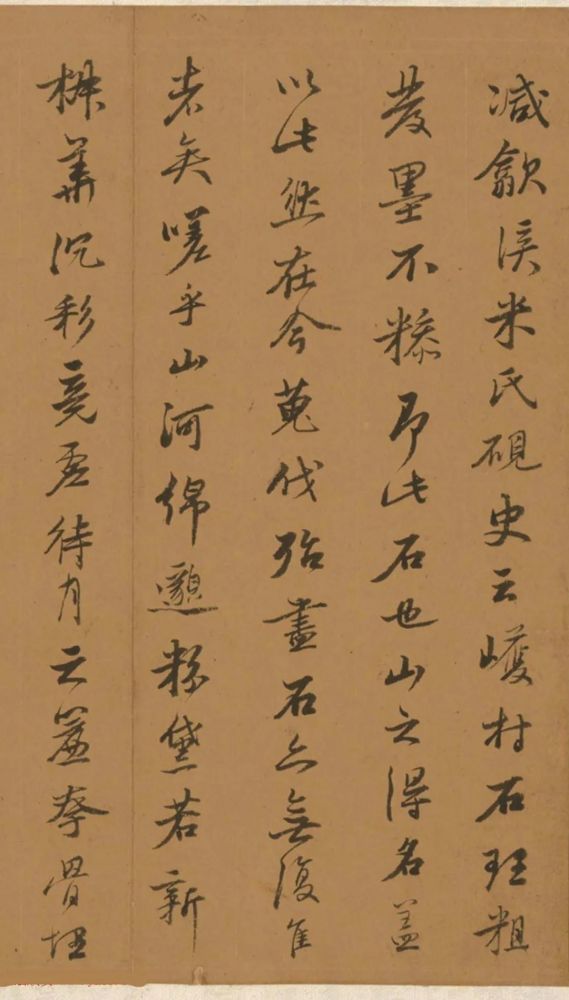 减歙溪米氏硯史云㠛村石理粗
發墨不糝即此石也山之得名蓋
以此然在今蒐伐殆盡石亦無復佳
者矣嗟乎山河綿邈粉黛若新
椒華沉彩竟虛待月之簾夸骨埋